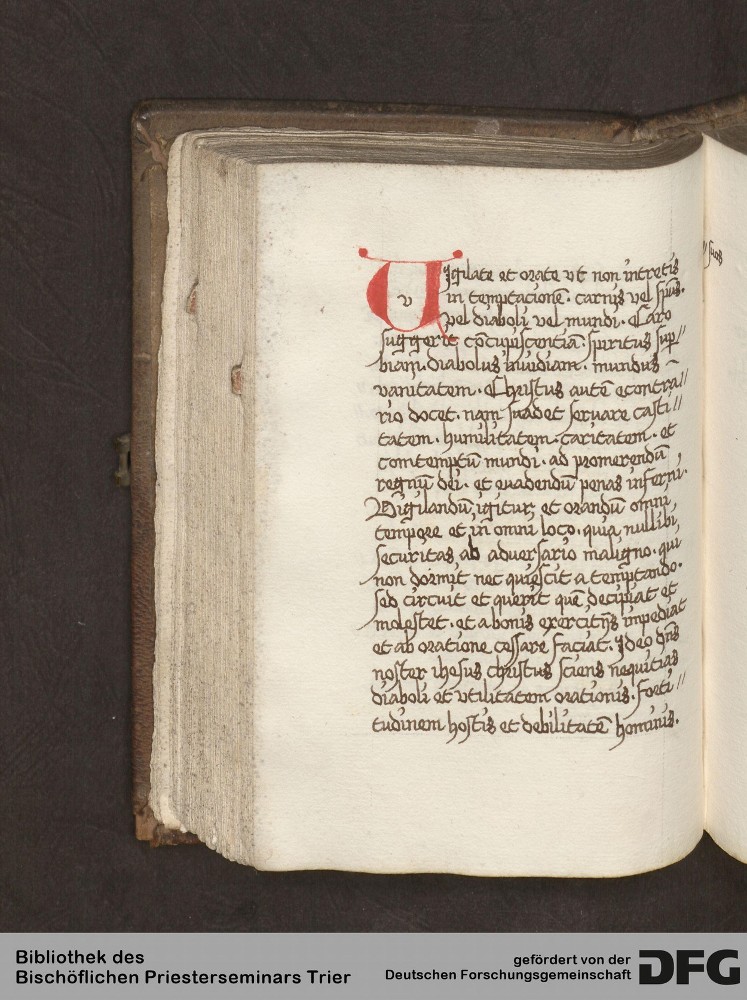 Vigilate et orate vt non intretis
in temptacionē. carnis vel spūs.
vel diaboli vel mundi. Caro
suggerit cōcupiscentiā. spiritus sup//
biam. diabolus inuidiam. mundus
vanitatem. Christus autē econtra//
rio docet. nam suadet seruare casti//
tatem. humilitatem. caritatem. et
comtemptū mundi. ad promerendū
regnū dei. et euadendum penas inferni.
Vigilandū, igitur, et orandū omni,
tempore et in omni loco. quia nullibi,
securitas, ab aduersario maligno. qui
non dormit nec quiescit a temptando.
sed circuit et querit quē decipiat et
molestet. et a bonis exercitijs impediat
et ab oratione cessare faciat. Ideo dn̄s
noster ihesus christus sciens nequitias
diaboli et vtilitatem orationis. forti//
tudinem hostis et debilitatē hominis.
suos
Bibliothek des
Bischöflichen Priesterseminars Trier
gefördert von der
Deutschen Forschungsgemeinschaft DFG